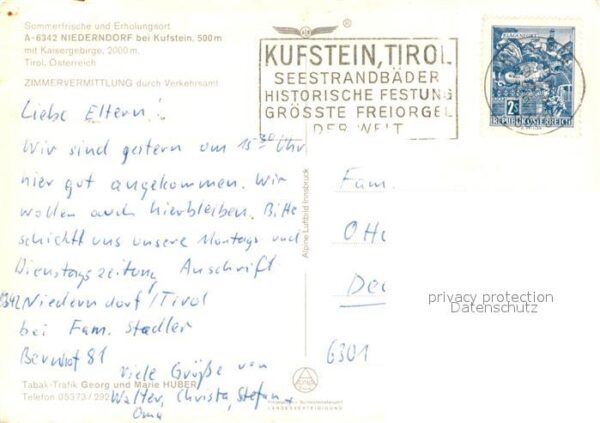 Sommerfrische und Erholungsort
A-6342 NIEDERNDORF bei Kufstein, 500m
mit Kaisergebirge, 2000m.
Tirol, Österreich
ZIMMERVERMITTLUNG durch Verkehrsamt
®
KUFSTEIN, TIROL
SEESTRANDBÄDER
HISTORISCHE FESTUNG
GRÖSSTE FREIORGEL
DER WELT
2S
REPUBLIK ÖSTERREICH
Liebe Eltern!
Wir sind gestern um 15 30 Uhr
hier gut angekommen. Wir
wollen auch hierbleiben. Bitte
schickt uns unsere Montags und
Dienstagszeitung Anschrift
6342 Niederndorf/Tirol
bei Fam. Stadler
81
Viele Grüße von
Walter, Christa, Stefan +
Oma
Tabak-Trafik Georg und Marie HUBER
Telefon 05373/292
Alpine Luftbild Innsbruck
LANDESVERTEIDIGUNG
Fam.
Otto
6301
privacy protection
Datenschutz